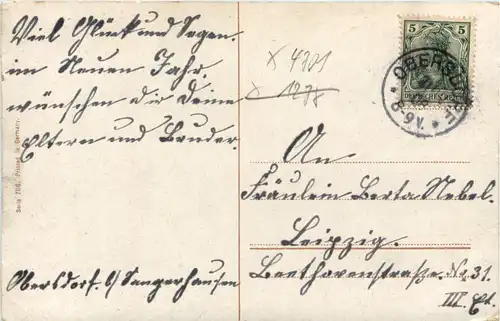 Viel Glück und Segen.
im Neuen Jahr.
wünschen dir deine
Eltern und Bruder.
Obersdorf. b/ Sangerhausen
Serie 706. Printed in Germany.
× 4301
× 1278
5 5
DEUTSCHES REICH
8-9V.
An
Fräulein Berta Nebel.
Leipzig.
Beethovenstraße. No. 31.
III. Et.